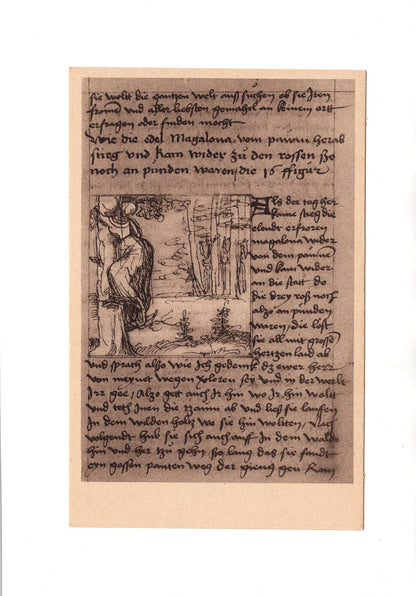 sie wolt die gantzen welt auss suchen ob sie Iren
fromen vnd aller liebsten gemahel an keinem ort
erfragen oder finden mocht
Wie die edel Magalona vom pawm herab
stieg vnd kam wider zu den rossen so
noch an punden waren die 16 ffigur
Als der tag her
kame stieg die
elender erfroren
magalona wider
von dem pawmen
vnd kam wider
an die statt do
die drey roß noch
also an punden
waren, die lost
sie all mit grossem
hertzen laid ab
vnd sprach also wie Ich gedenck dz ewer herr
von meynet wegen verloren sey vnd in der welt
Irr gee, Also gett auch Ir hin wo Ir hin wolt
vnd teth Inen die tzaum ab vnd ließ sie lauffen
In dem wilden holtz wo sie hin wollten, Nach
volgendt hub sie sich auch auf In dem walde
hin vnd her tzu gehn so lang das sie fandt
eyn grossen ponten weg der gieng gen Rom